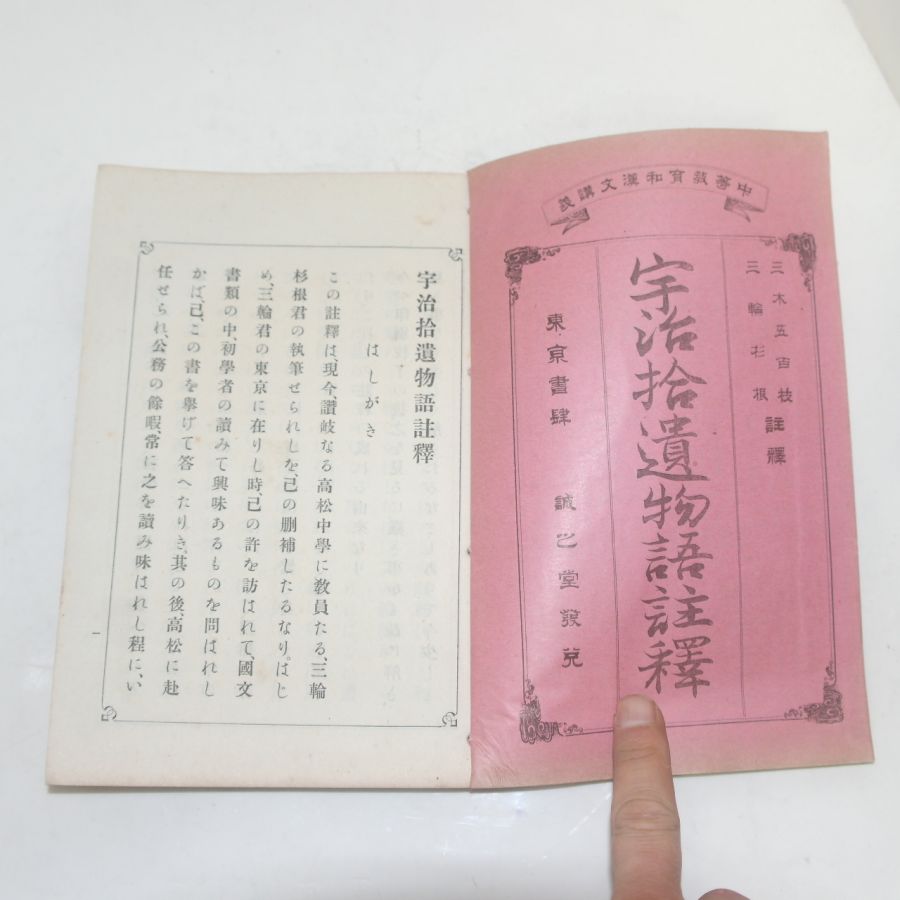 中等敎育和漢文講義
三木五百枝
三輪杉根
註釋
宇治拾遺物語註釋
東京書肆 誠之堂發兌
宇治拾遺物語註釋
はしがき
この註釋は、現今、讃岐なる高松中學に敎員たる、三輪
杉根君の執筆せられしを、己の刪補したるなり。はじ
め、三輪君の東京に在りし時、己の許を訪はれて、國文
書類の中、初學者の讀みて興味あるものを問はれし
かば、己、この書を擧げて答へたりき、其の後、高松に赴
任せられ、公務の餘暇、常に之を讀み味はれし程に、い
一